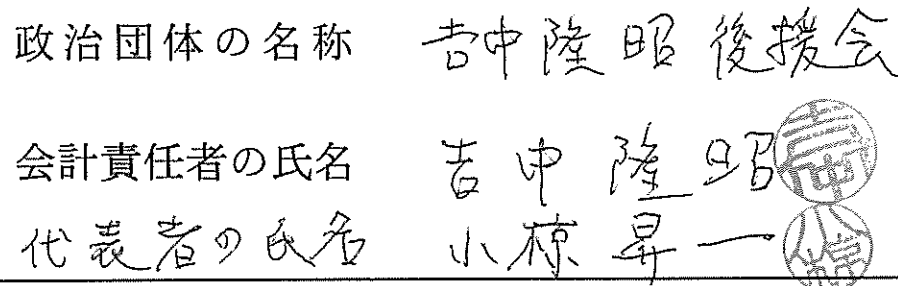 政治団体の名称 吉中隆昭後援会
会計責任者の氏名 吉中隆昭 吉中
代表者の氏名 小椋昇一 小椋